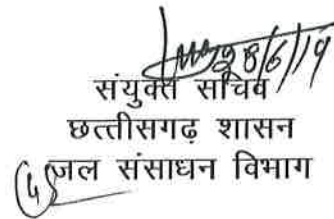 28/6/19
संयुक्त सचिव
छत्तीसगढ़ शासन
(4) जल संसाधन विभाग